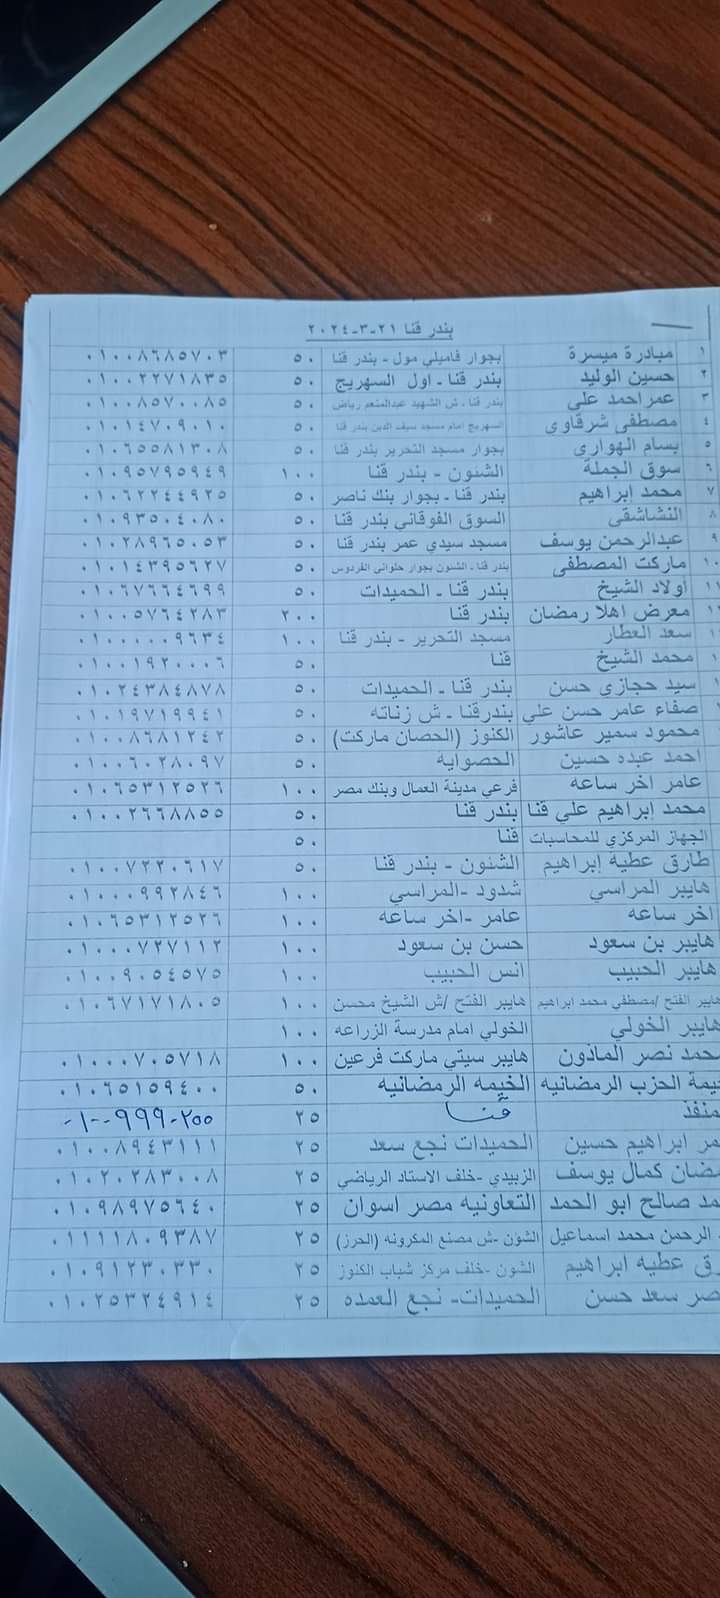 بندر قنا ٢١-٣-٢٠٢٤
١ مبادرة ميسرة بجوار فاميلي مول - بندر قنا ٥٠ ٠١٠٠٨٦٨٥٧٠٣
٢ حسين الوليد بندر قنا - اول السهريج ٥٠ ٠١٠٠٢٢٧١٨٣٥
٣ عمر احمد على بندر قنا - ش الشهيد عبدالمنعم رياض ٥٠ ٠١٠٠٨٥٧٠٠٨٥
٤ مصطفى شرقاوي السهريج امام مسجد سيف الدين بندر قنا ٥٠ ٠١٠١٤٧٠٩٠١٠
٥ بسام الهواري بجوار مسجد التحرير بندر قنا ٥٠ ٠١٠٦٥٥٨١٣٠٨
٦ سوق الجملة الشئون - بندر قنا ١٠٠ ٠١٠٩٥٧٩٥٩٤٩
٧ محمد ابراهيم بندر قنا - بجوار بنك ناصر ٥٠ ٠١٠٦٢٢٤٤٩٢٥
٨ النشاشقى السوق الفوقاني بندر قنا ٥٠ ٠١٠٩٣٥٠٤٠٨٠
٩ عبدالرحمن يوسف مسجد سيدي عمر بندر قنا ٥٠ ٠١٠٢٨٩٦٥٠٥٣
١٠ ماركت المصطفى بندر قنا - الشئون بجوار حلواني الفردوس ٥٠ ٠١٠١٤٣٩٥٦٢٧
١١ اولاد الشيخ بندر قنا - الحميدات ٥٠ ٠١٠٦٧٧٦٤٦٩٩
١٢ معرض اهلا رمضان بندر قنا ٢٠٠ ٠١٠٠٥٧٦٤٢٨٣
سعد العطار مسجد التحرير - بندر قنا ١٠٠ ٠١٠٠٠٠٠٩٦٣٤
محمد الشيخ قنا ٥٠ ٠١٠٠١٩٢٠٠٠٦
سيد حجازي حسن بندر قنا - الحميدات ٥٠ ٠١٠٢٤٣٨٤٨٧٨
صفاء عامر حسن علي بندرقنا - ش زناته ٥٠ ٠١٠١٩٧١٩٩٤١
محمود سمير عاشور الكنوز (الحصان ماركت) ٥٠ ٠١٠٠٨٦٨١٢٤٢
احمد عبده حسين الحصوايه ٥٠ ٠١٠٠٦٠٢٨٠٩٧
عامر اخر ساعه فرعي مدينة العمال وبنك مصر ١٠٠ ٠١٠٦٥٣١٢٥٢٦
محمد إبراهيم علي قنا بندر قنا ٥٠ ٠١٠٠٢٦٦٨٨٥٥
الجهاز المركزي للمحاسبات قنا ٥٠
طارق عطيه إبراهيم الشئون - بندر قنا ٥٠ ٠١٠٠٧٢٢٠٦١٧
هايبر المراسي شدود -المراسي ١٠٠ ٠١٠٠٠٩٩٢٨٤٦
اخر ساعه عامر -اخر ساعه ١٠٠ ٠١٠٦٥٣١٢٥٢٦
هايبر بن سعود حسن بن سعود ١٠٠ ٠١٠٠٠٧٢٧١١٢
هايبر الحبيب انس الحبيب ١٠٠ ٠١٠٠٩٠٥٤٥٧٥
هايبر الفتح /مصطفي محمد ابراهيم هايبر الفتح /ش الشيخ محسن ١٠٠ ٠١٠٦٧١٧١٨٠٥
هايبر الخولي الخولي امام مدرسة الزراعه ١٠٠
حمد نصر الماذون هايبر سيتي ماركت فرعين ١٠٠ ٠١٠٠٠٧٠٥٧١٨
يمة الحزب الرمضانيه الخيمه الرمضانيه ٥٠ ٠١٠٦٥١٥٩٤٠٠
منفذ قنا ٢٥ ٠١٠٠٩٩٩٠٢٥٥
مر ابراهيم حسين الحميدات نجع سعد ٢٥ ٠١٠٠٨٩٤٣١١١
ضان كمال يوسف الزبيدي -خلف الاستاد الرياضي ٢٥ ٠١٠٢٠٢٨٣٠٠٨
مد صالح ابو الحمد التعاونيه مصر اسوان ٢٥ ٠١٠٩٨٩٧٥٦٤٠
الرحمن محمد اسماعيل الشؤن -ش مصنع المكرونه (الحرز) ٢٥ ٠١١١١٨٠٩٣٨٧
ق عطيه ابراهيم الشون -خلف مركز شباب الكنوز ٢٥ ٠١٠٩١٢٣٠٣٣٠
صر سعد حسن الحميدات- نجع العمده ٢٥ ٠١٠٢٥٣٢٤٩١٤